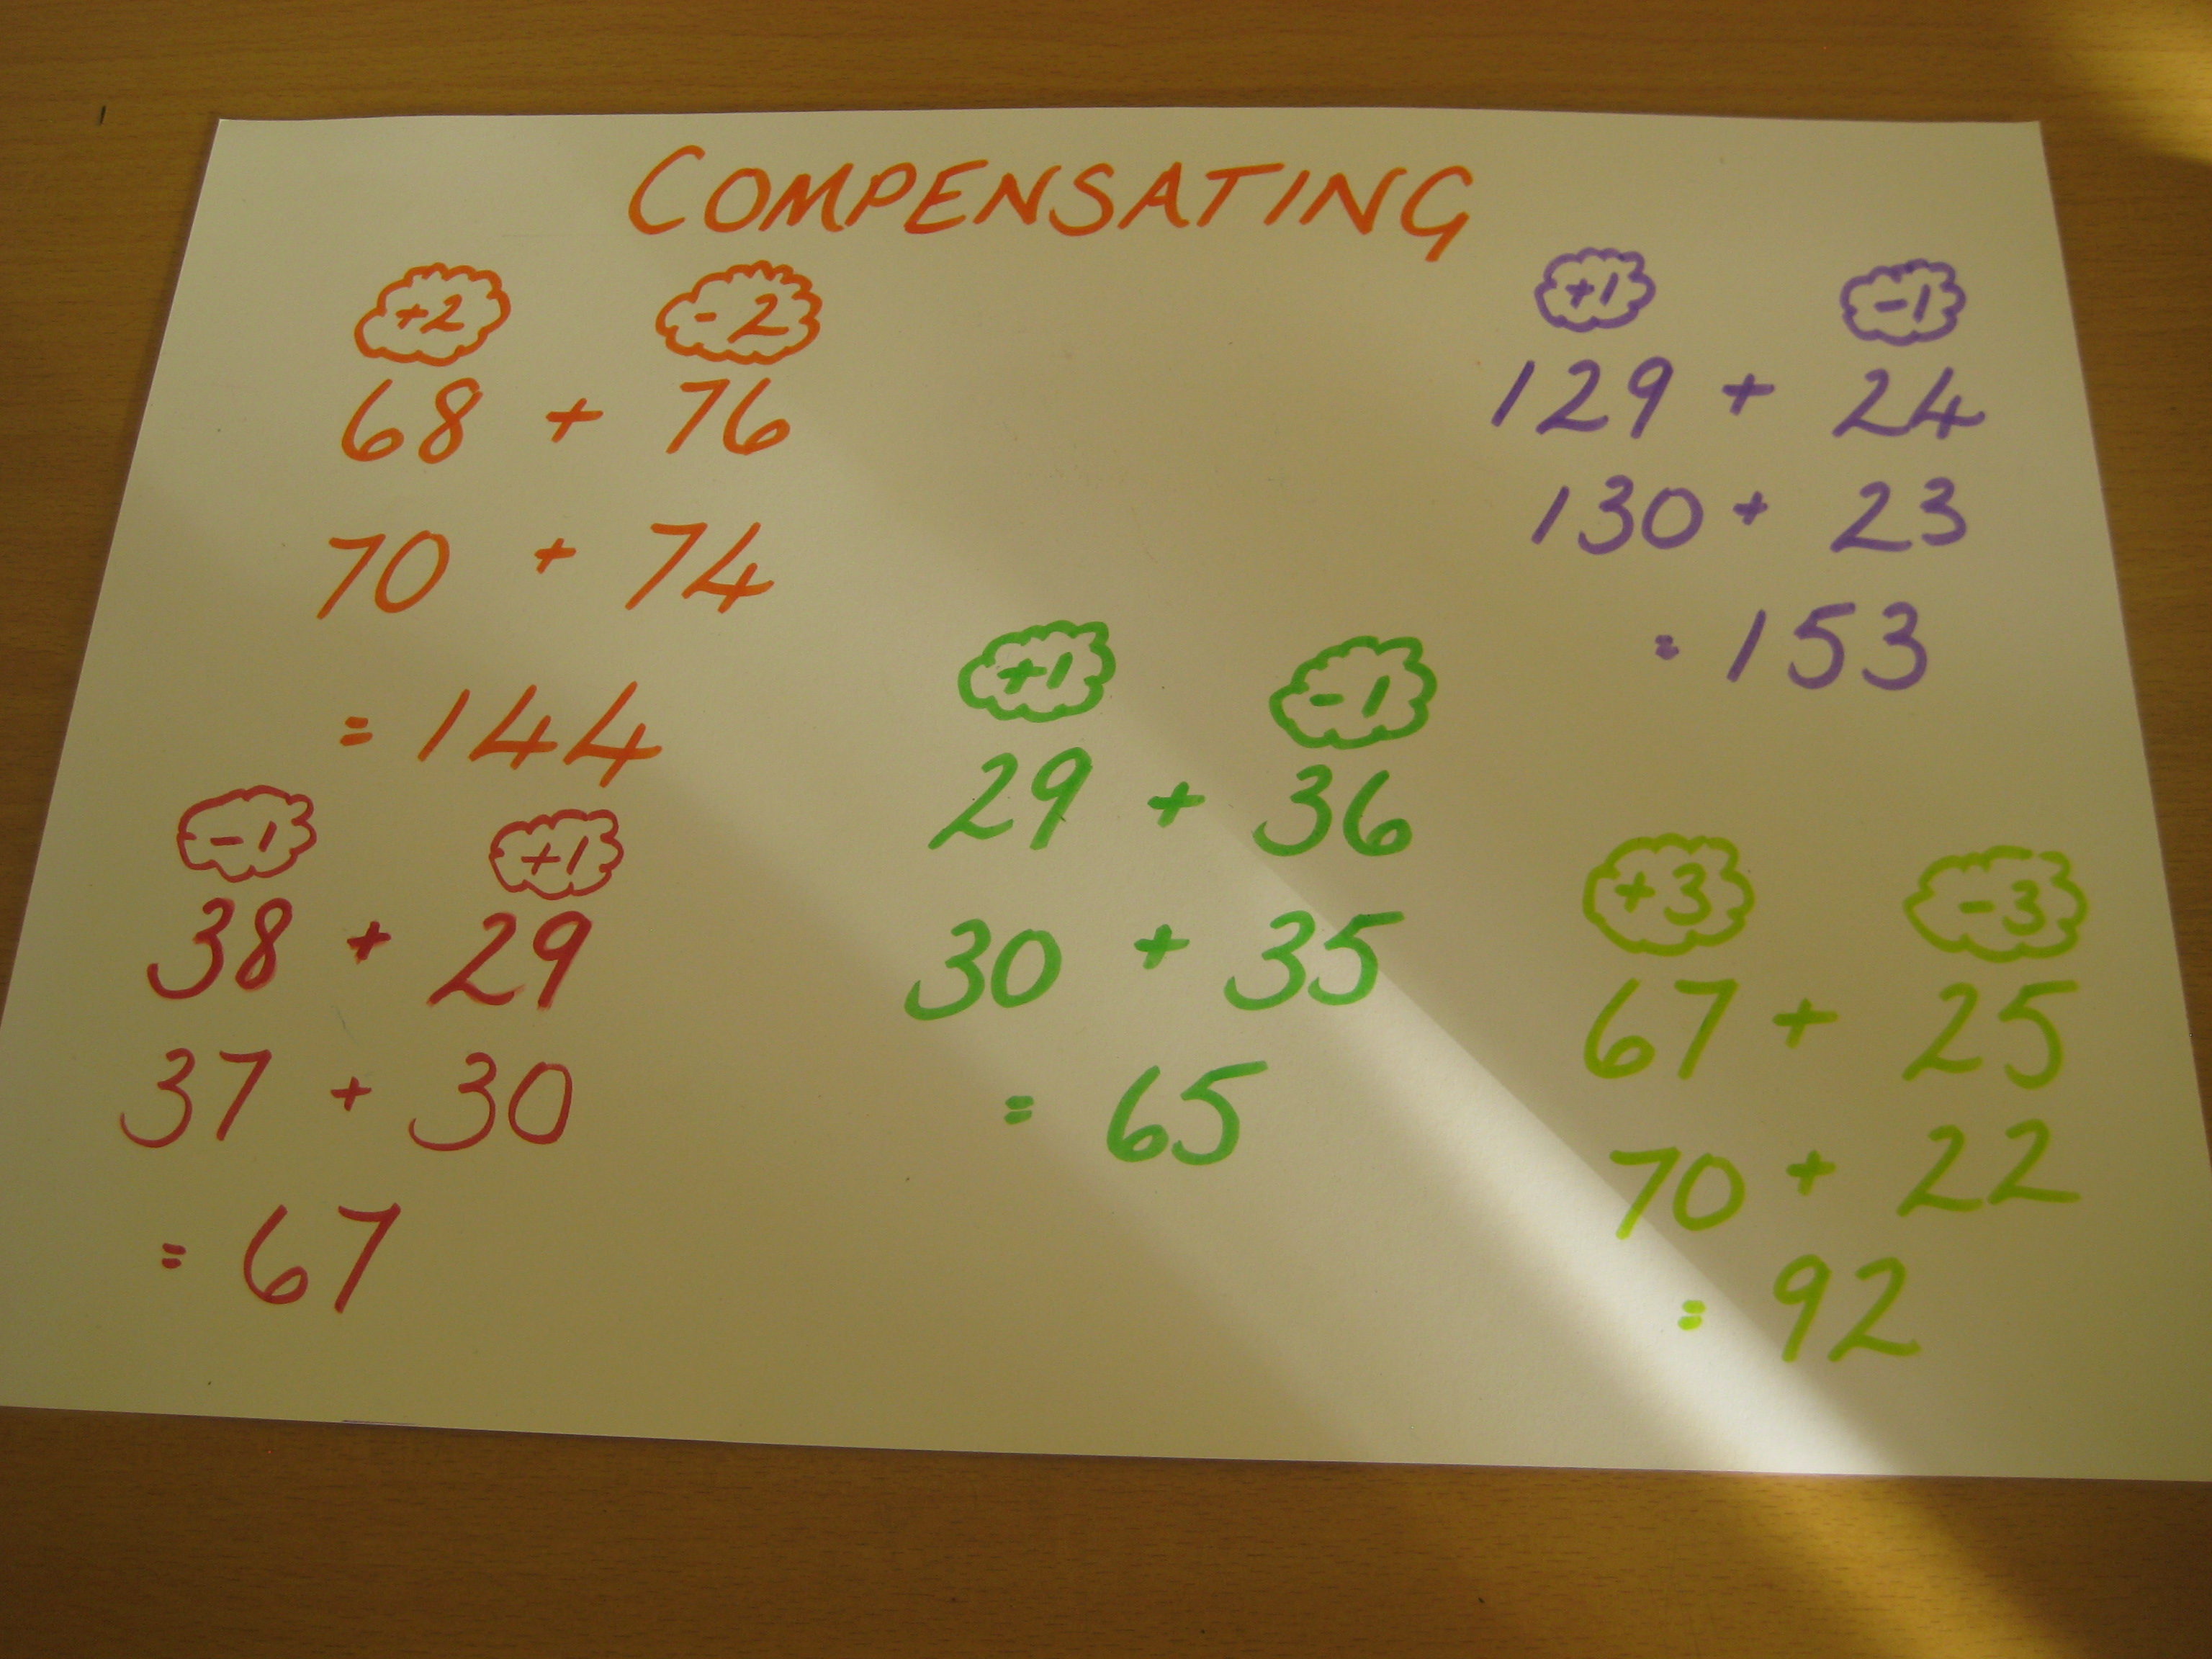 COMPENSATING
+2 -2
68 + 76
70 + 74
= 144
+1 -1
129 + 24
130 + 23
= 153
-1 +1
38 + 29
37 + 30
= 67
+1 -1
29 + 36
30 + 35
= 65
+3 -3
67 + 25
70 + 22
= 92